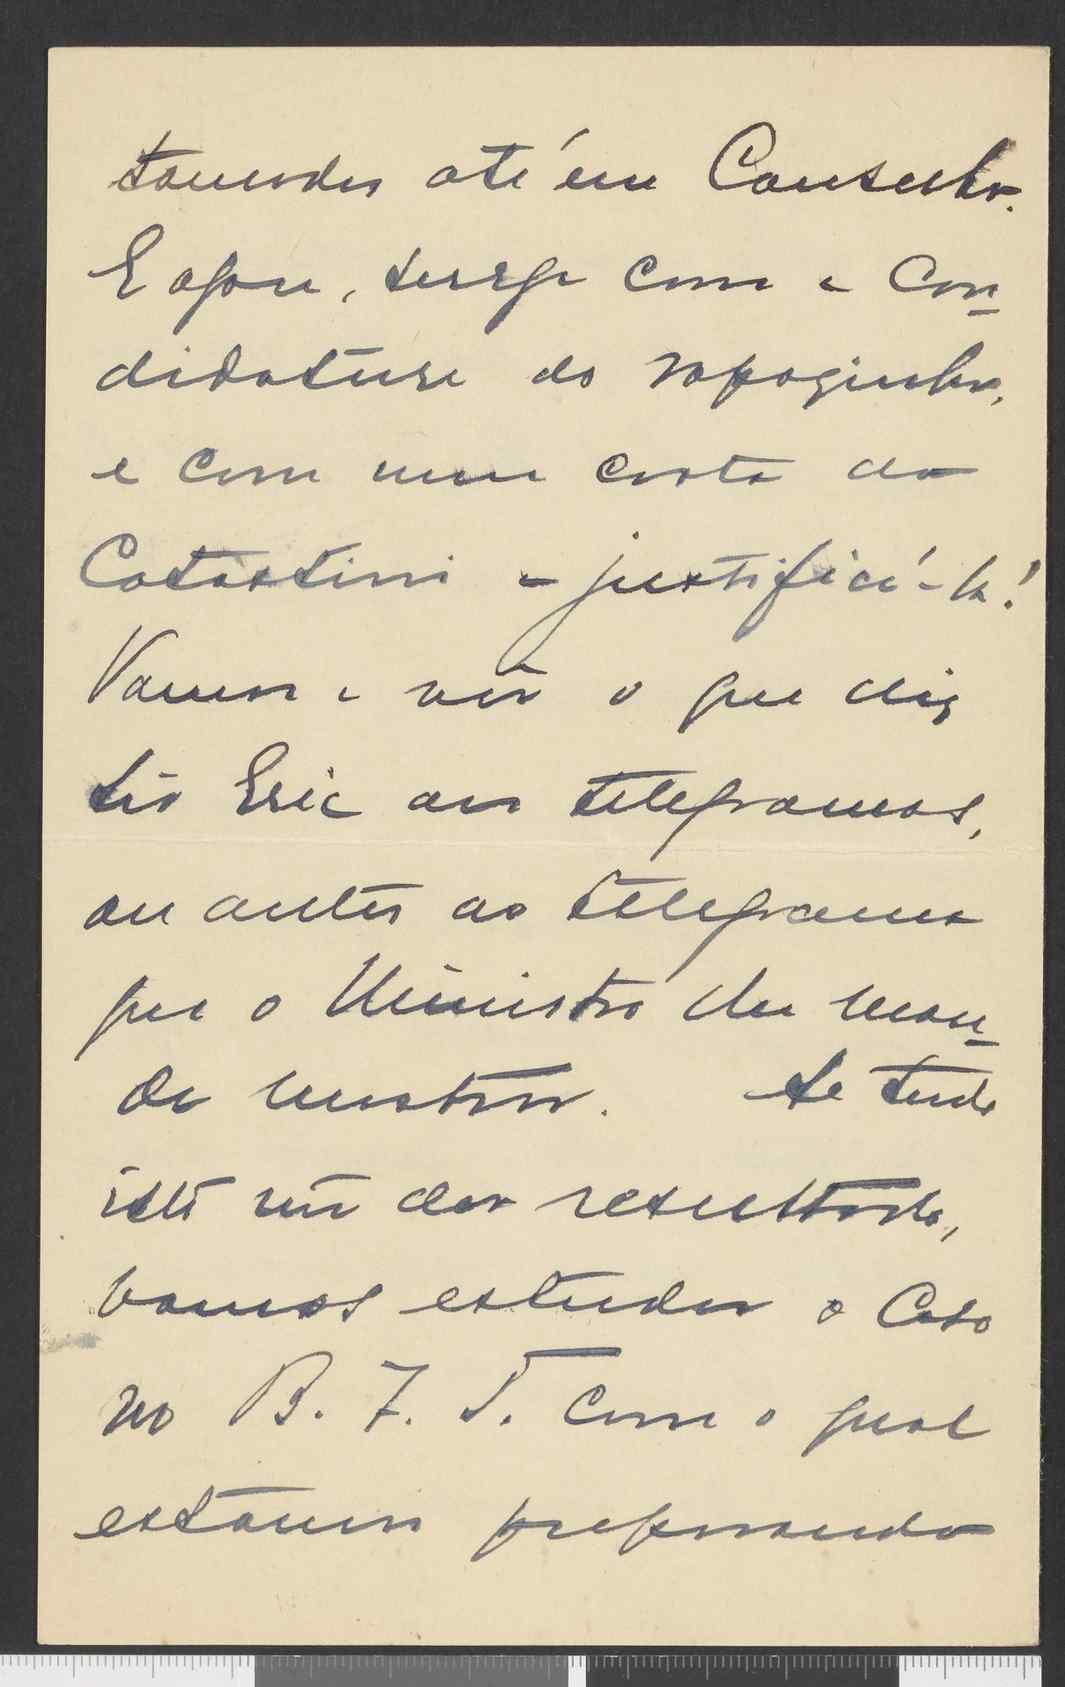 tomados até em Conselho.
E agora, surge com a can-
didatura do rapaginho,
e com uma carta do
Catastini a justificá-la!
Vamos a vêr o que diz
Sir Eric aos telegramas,
ou antes ao telegrama
que o Ministro lhe man-
da mostrar. Se tudo
isto não der resultado,
vamos estudar o caso
no B. I. T. com o qual
estamos preparando